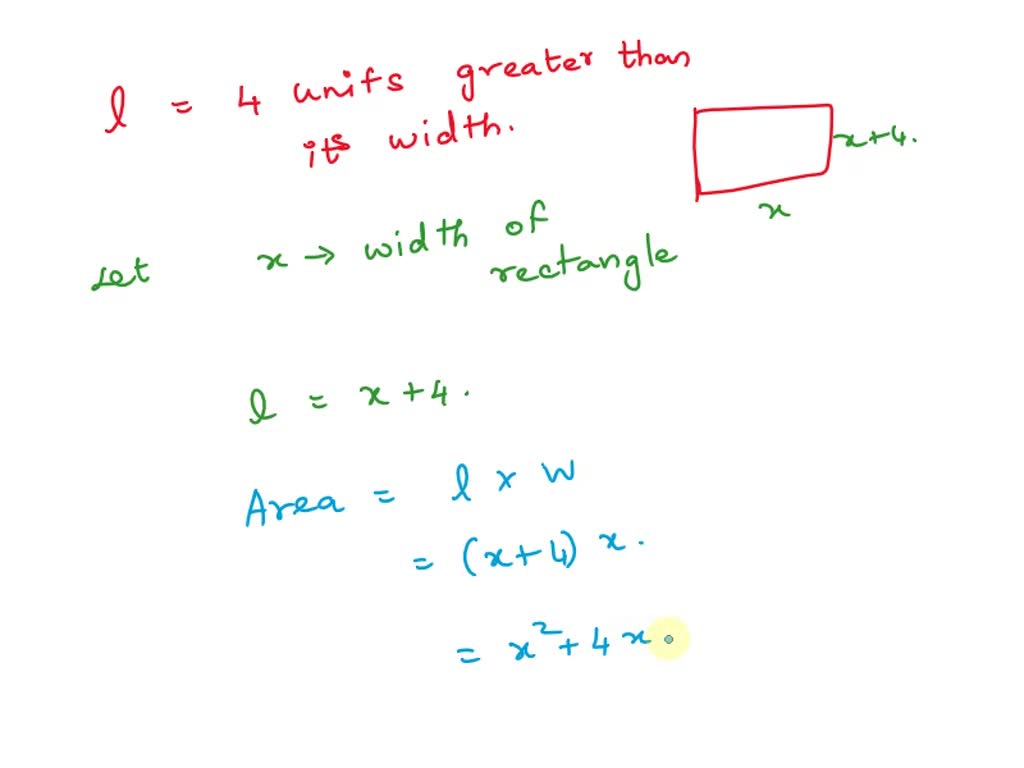 l = 4 units greater than
its width.
x+4.
x
Let x → width of
rectangle
l = x+4.
Area = l × W
= (x+4) x.
= x²+4x